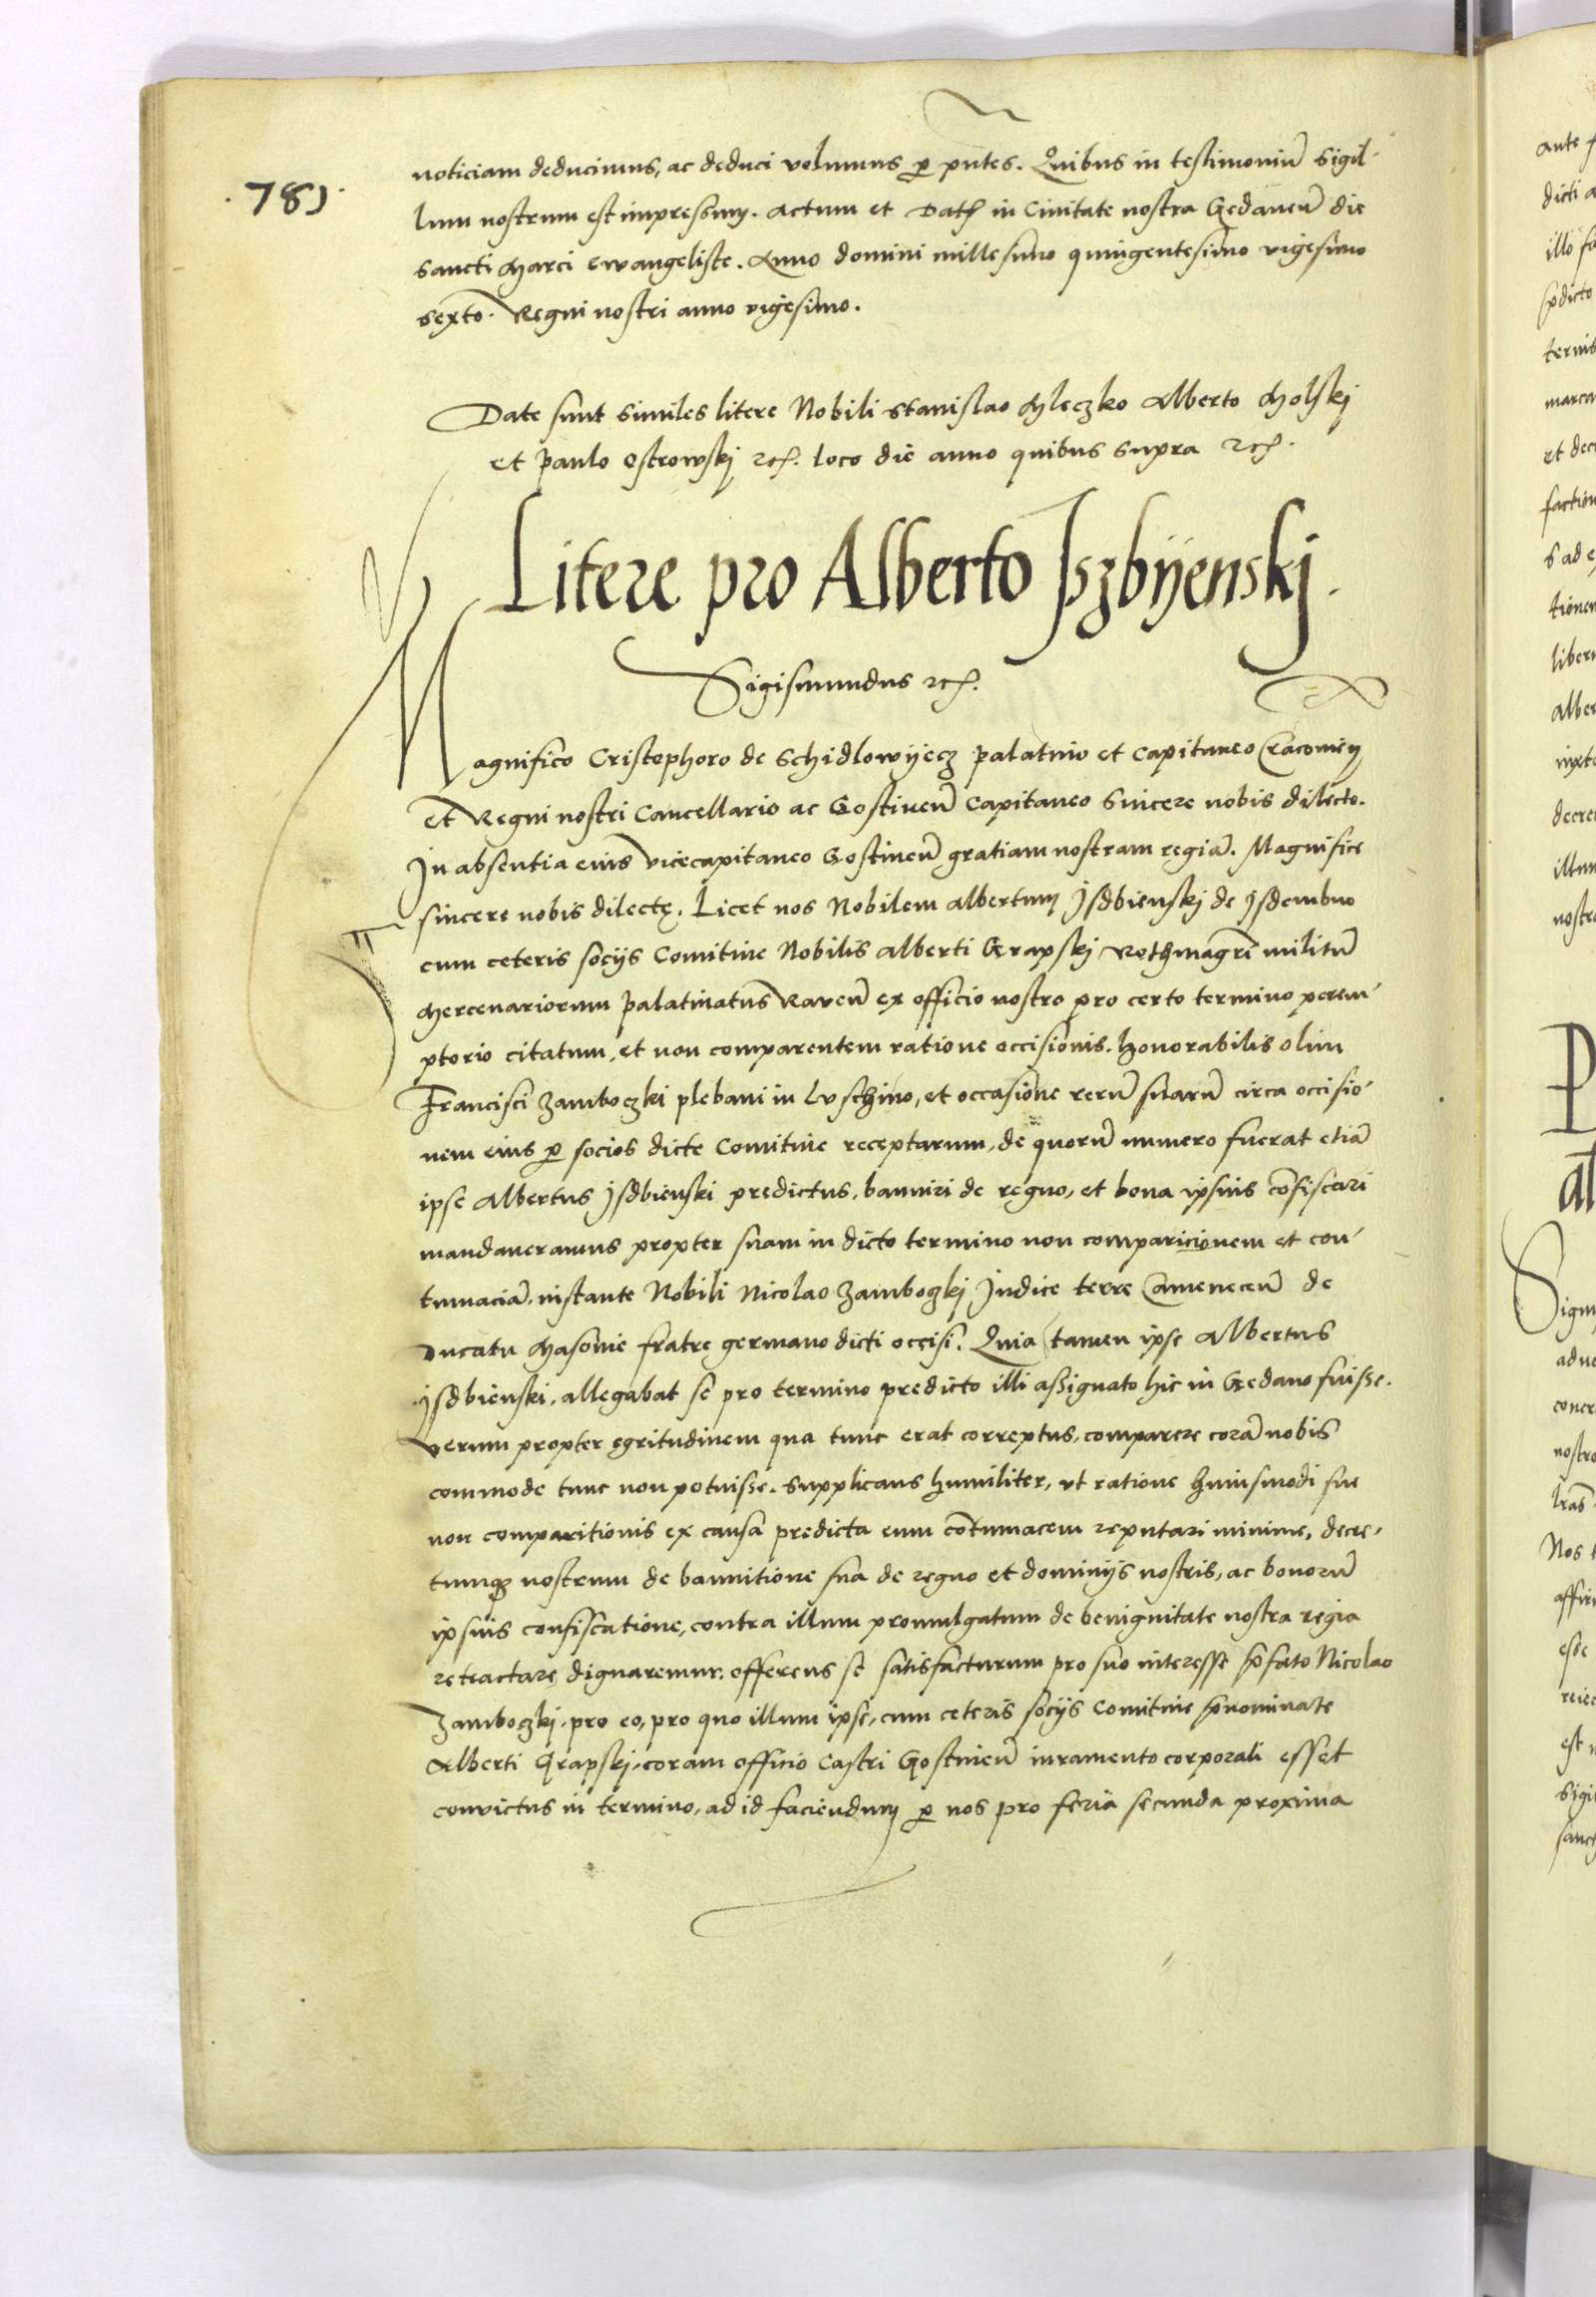 noticiam deducimus, ac deduci volumus p̱ pntes. Quibus in testimoniū sigil-
.789.
lum nostrum est impressum. Actum et Dat in Civitate nostra Gedaneñ die
sancti Marci Ewangeliste. Anno domini millesimo quingentesimo vigesimo
sexto. Regni nostri anno vigesimo.
Date sunt similes litere Nobili Stanislao Mleczko Alberto Molskj
et paulo Ostrowskj etc. loco die anno quibus supra etc.
Litere pro Alberto Jszbyenskj.
Sigismundus etc.
Magnifico Cristophoro de Schidlowyecz palatino et Capitaneo Cracovieñ
et Regni nostri Cancellario ac Gostineñ Capitaneo sincere nobis dilecto.
In absentia eius vicecapitaneo Gostineñ gratiam nostram regiā. Magnifice
sincere nobis dilectę. Licet nos Nobilem Albertum Jsdbienskj de
cum ceteris socijs Comitive Nobilis Alberti Grapskj militū
Mercenariorum palatinatus Raveñ ex officio nostro pro certo termino perem-
ptorio citatum, et non comparentem ratione occisionis. honorabilis olim
Francisci Zamboczki plebani in Luschino, et occasione rerū suarū circa occisio-
nem eius p̱ socios dicte Comitive receptarum, de quorū numero fuerat etiā
ipse Albertus Jsdbienski predictus, banniri de regno, et bona ipsius cōfiscari
mandaveramus propter suam in dicto termino non comparicionem et con-
tumaciā, instante Nobili Nicolao Zamboczkj Judice terre Cameneceñ de
Ducatu Masovie fratre germano dicti occisi. Quia tamen ipse Albertus
Jsdbienski, allegabat se pro termino predicto illi assignato hic in Gedano fuisse.
verum propter ęgritudinem qua tunc erat correptus, comparere corā nobis
commode tunc non potuisse. supplicans humiliter, ut ratione huiusmodi sue
non comparitionis ex causa predicta eum cōtumacem reputari minime, decre-
tumq3 nostrum de bannitione sua de regno et dominijs nostris, ac bonorū
ipsius confiscatione, contra illum promulgatum de benignitate nostra regia
retractare dignaremur. offerens se satisfacturum pro suo interesse p̄fato Nicolao
Zamboczkj, pro eo, pro quo illum ipse, cum ceteris socijs Comitive p̄nominate
Alberti Grapskj, coram officio Castri Gostineñ iuramento corporali esset
convictus in termino, ad id faciendum p̱ nos pro feria secunda proxima